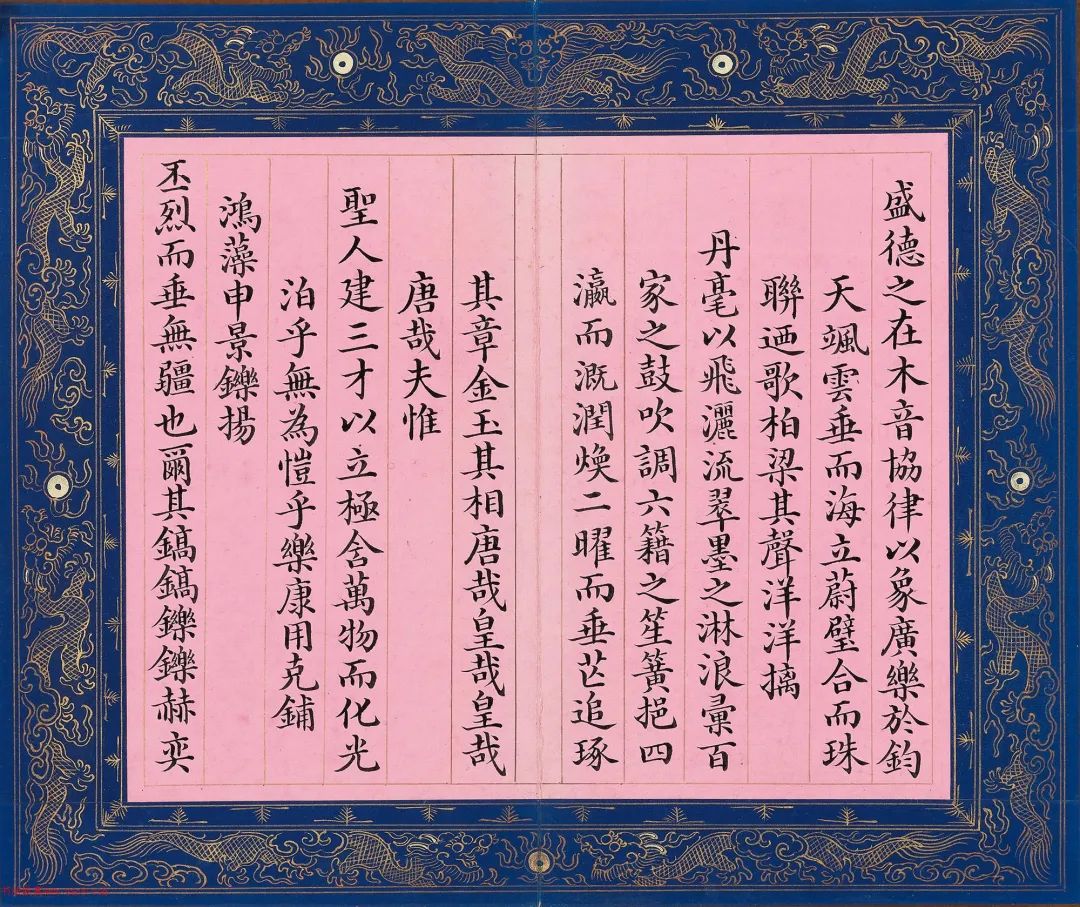 盛德之在木音協律以象廣樂於鈞
天颯雲垂而海立蔚璧合而珠
聯迺歌柏梁其聲洋洋摛
丹毫以飛灑流翠墨之淋浪彙百
家之鼓吹調六籍之笙簧挹四
瀛而溉潤煥二曜而垂芒追琢
其章金玉其相唐哉皇哉皇哉
唐哉夫惟
聖人建三才以立極含萬物而化光
泊乎無為愷乎樂康用克鋪
鴻藻申景鑠揚
丕烈而垂無疆也爾其鎬鎬鑠鑠赫奕